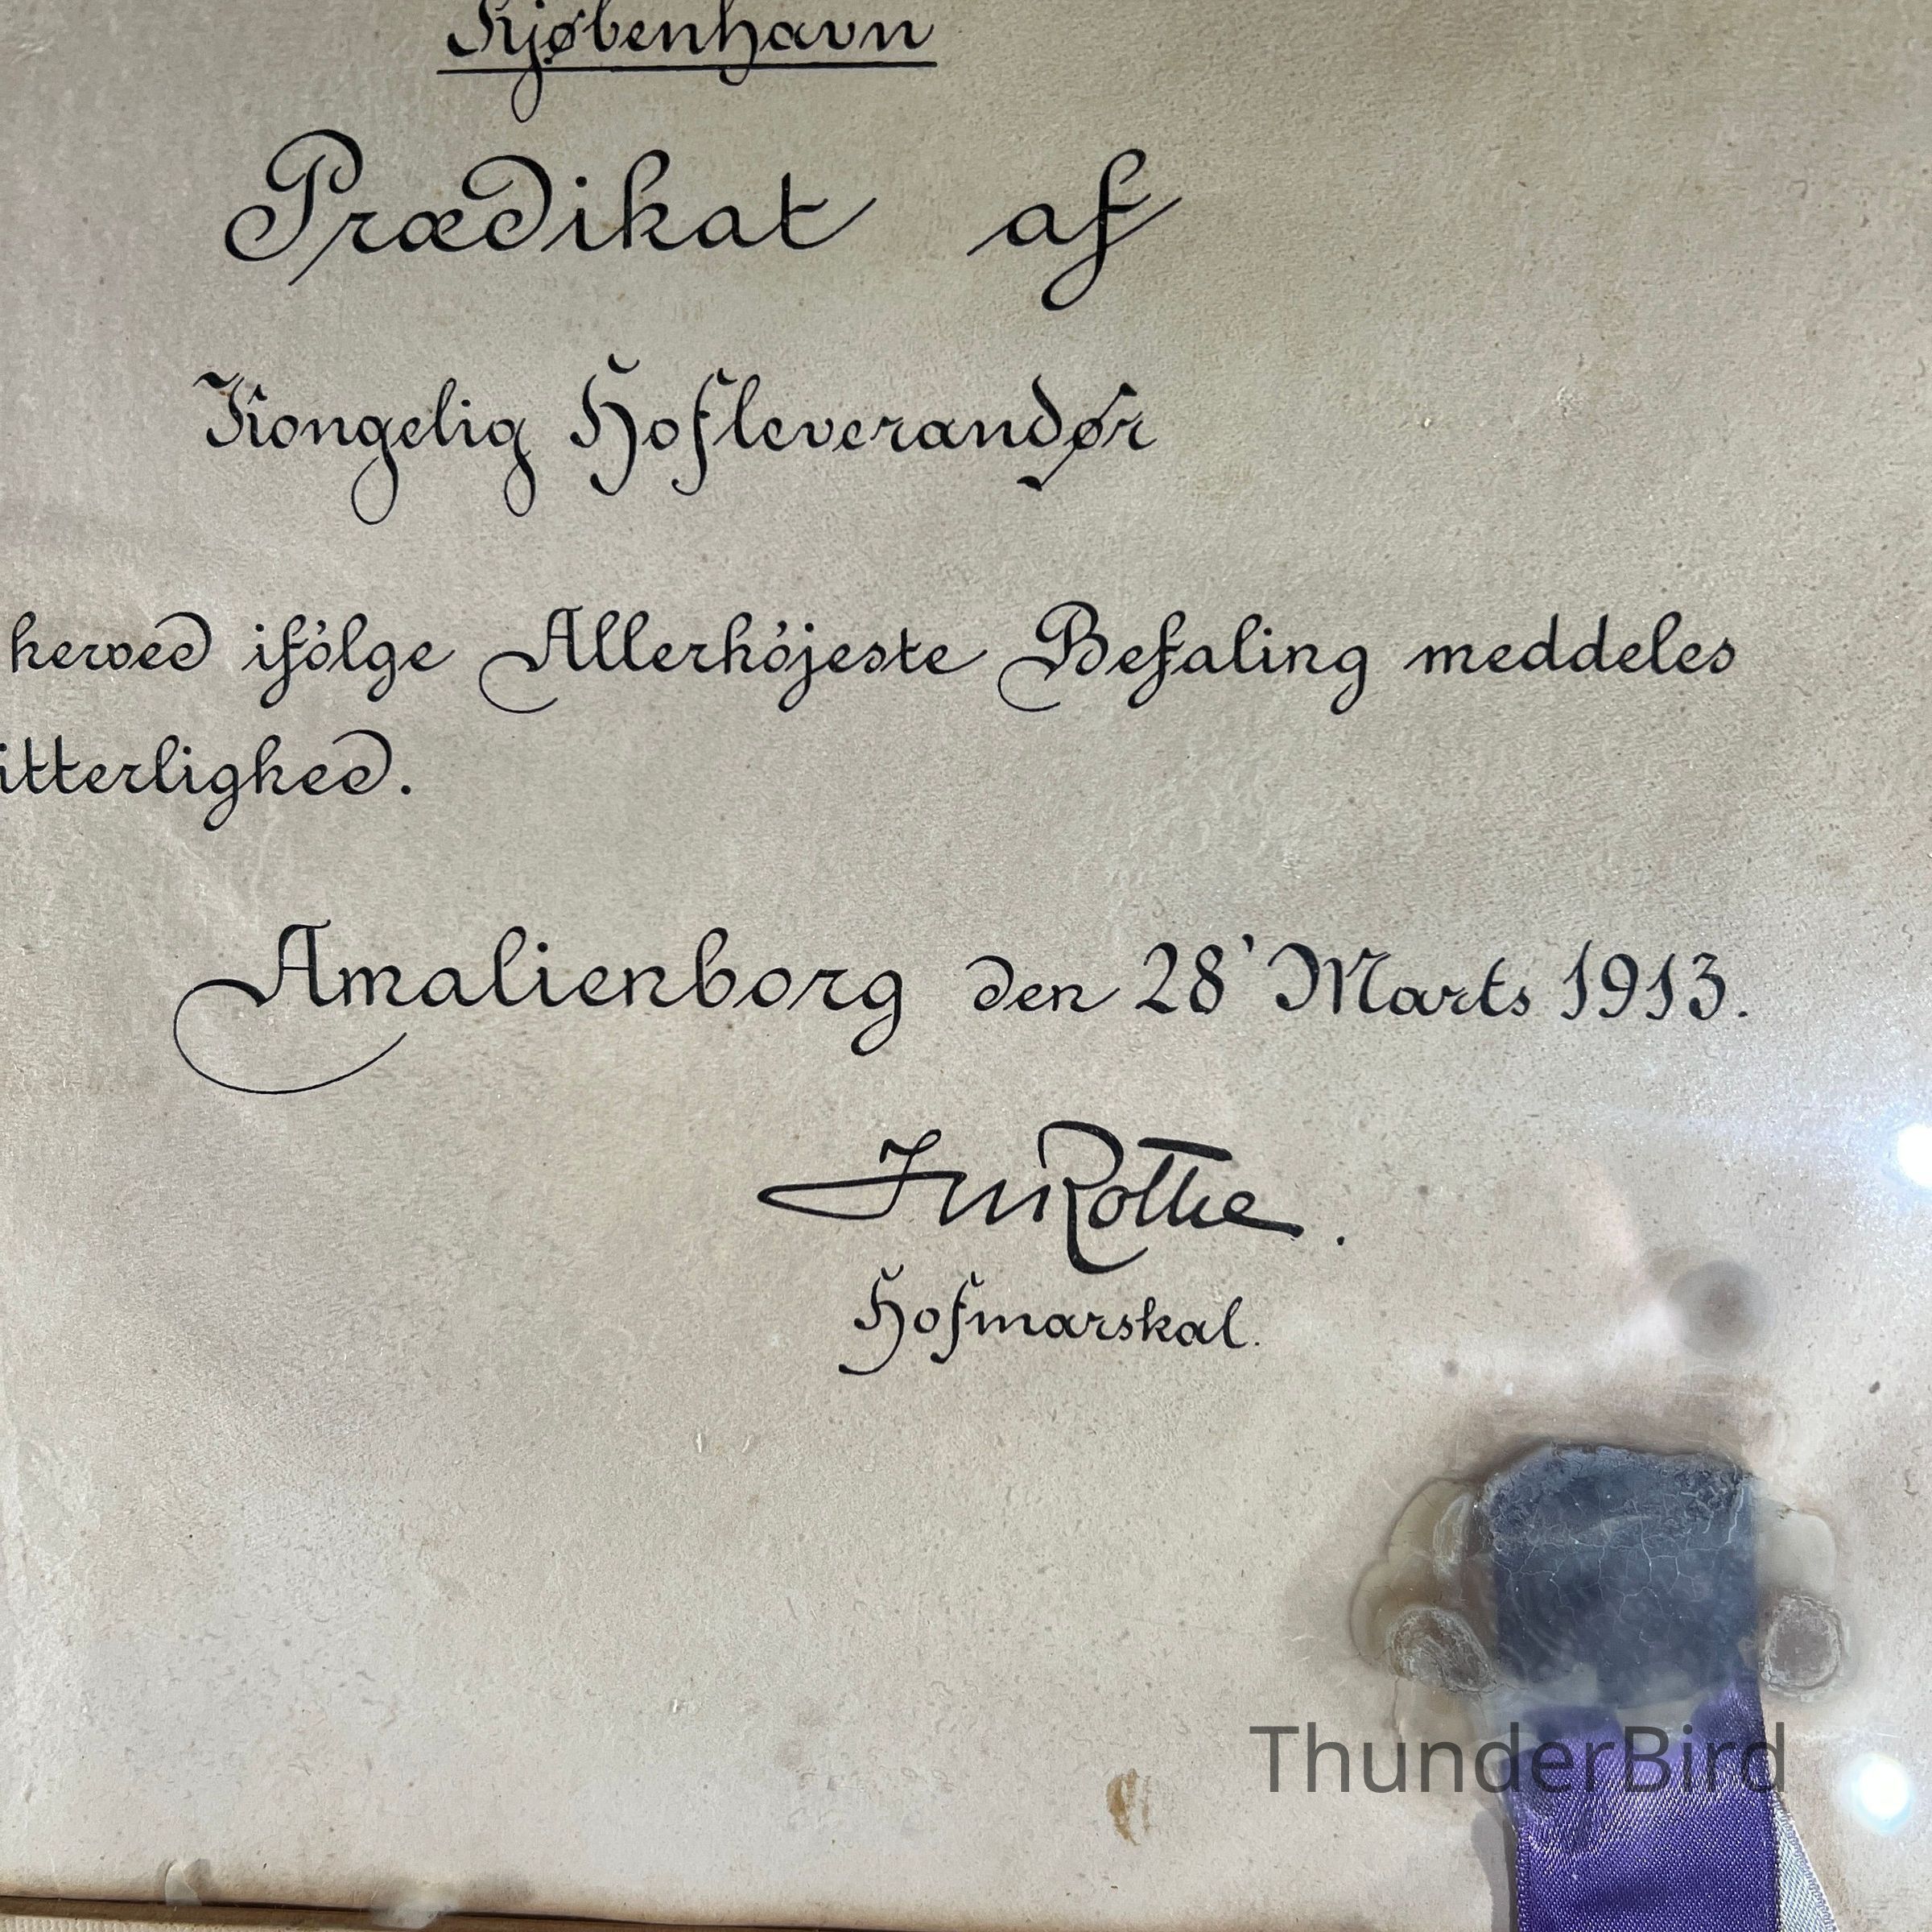 Kjøbenhavn
Prædikat af
Kongelig Hofleverandør
herved ifölge Allerhöjeste Befaling meddeles
itterlighed.
Amalienborg den 28' Marts 1913.
Rothe.
Hofmarskal.
ThunderBird